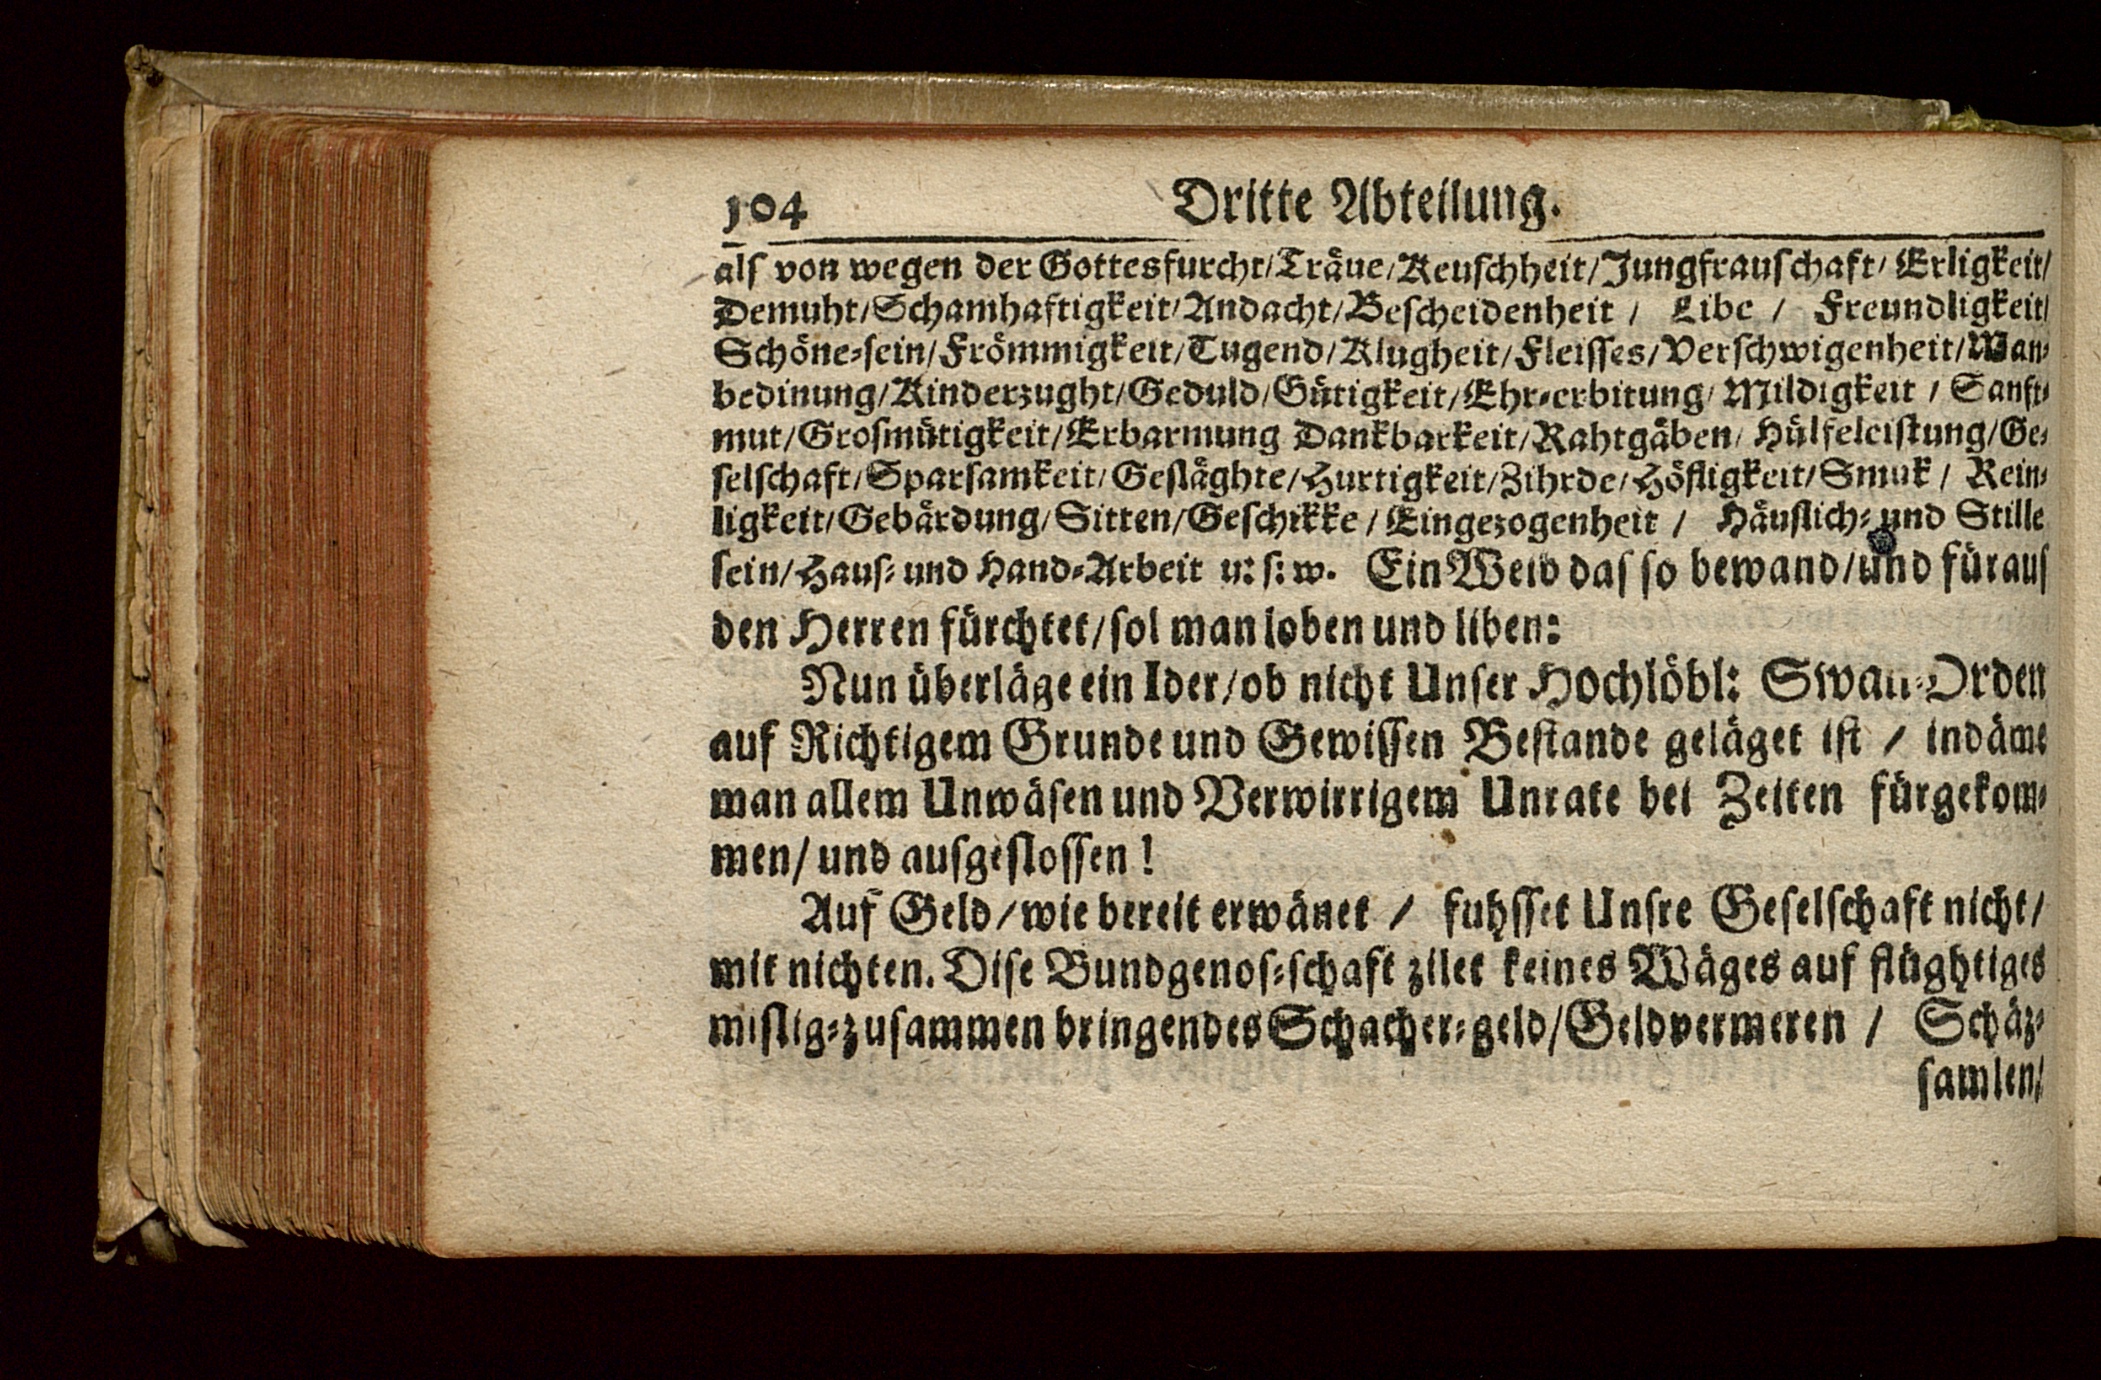 104 Dritte Abteilung.
alſ von wegen der Gottesfurcht/Träue/Keuſchheit/Jungfrauſchaft/ Erligkeit/
Demuht/Schamhaftigkeit/Andacht/Beſcheidenheit / Libe / Freundligkeit/
Schöne⸗ſein/Frömmigkeit/Tugend/Klugheit/Fleiſſes/Verſchwigenheit/Man⸗
bedinung/Kinderzught/Geduld/Gütigkeit/Ehr⸗erbitung/ Mildigkeit / Sanft⸗
mut/Groſmütigkeit/Erbarmung Dankbarkeit/Rahtgäben/ Hülfeleiſtung/Ge⸗
ſelſchaft/Sparſamkeit/Geſläghte/Hurtigkeit/Zihrde/Höfligkeit/Smuk / Rein⸗
ligkeit/Gebärdung/Sitten/Geſchikke / Eingezogenheit / Häuſlich⸗ und Stille
ſein/Hauſ⸗ und Hand⸗Arbeit u: ſ: w. Ein Weib das ſo bewand/und füraus
den Herren fürchtet/ſol man loben und liben:
Nun überläge ein Ider/ob nicht Unſer Hochlöbl: Swan⸗Orden
auf Richtigem Grunde und Gewiſſen Beſtande geläget iſt / indäme
man allem Unwäſen und Verwirrigem Unrate bei Zeiten fürgekom⸗
men/ und auſgeſloſſen!
Auf Geld/wie bereit erwänet / fuhſſet Unſre Geſelſchaft nicht/
mit nichten. Diſe Bundgenoſ⸗ſchaft zilet keines Wäges auf flüghtiges
miſlig⸗zuſammen bringendes Schacher⸗geld/Geldvermeren / Schäz⸗
ſamlen/